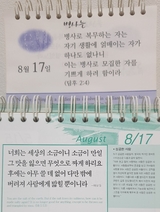 병사로 복무하는 자는
자기 생활에 얽매이는 자가
하나도 없나니
이는 병사로 모집한 자를
기쁘게 하려 함이라
(딤후 2:4)
8월 17일
August 8/17
너희는 세상의 소금이니 소금이 만일
그 맛을 잃으면 무엇으로 짜게 하리요
후에는 아무 쓸 데 없어 다만 밖에
버려져 사람에게 밟힐 뿐이니라